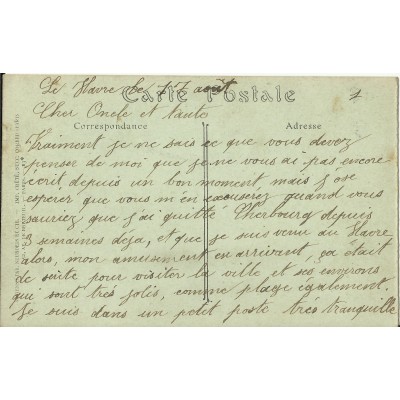 Le Havre le 17 août
Carte Postale
Cher Oncle et tante
Correspondance
Adresse
Vraiment je ne sais ce que vous devez
penser de moi que je ne vous ai pas encore
écrit, depuis un bon moment, mais j'ose
esperer que vous m'en excuserez quand vous
sauriez que j'ai quitté Cherbourg depuis
3 semaines déja, et que je suis venu au Havre
alors, mon amusement en arrivant, ça était
de suite pour visiter la ville et ses environs
qui sont très jolis, comme plage également.
Je suis dans un petit poste très tranquille